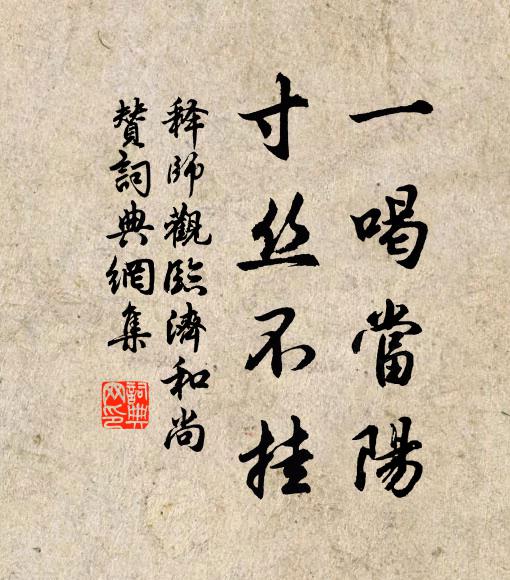 一喝當陽
寸丝不挂
释師觀臨濟和尚
贊詞典網集
詞典
网印